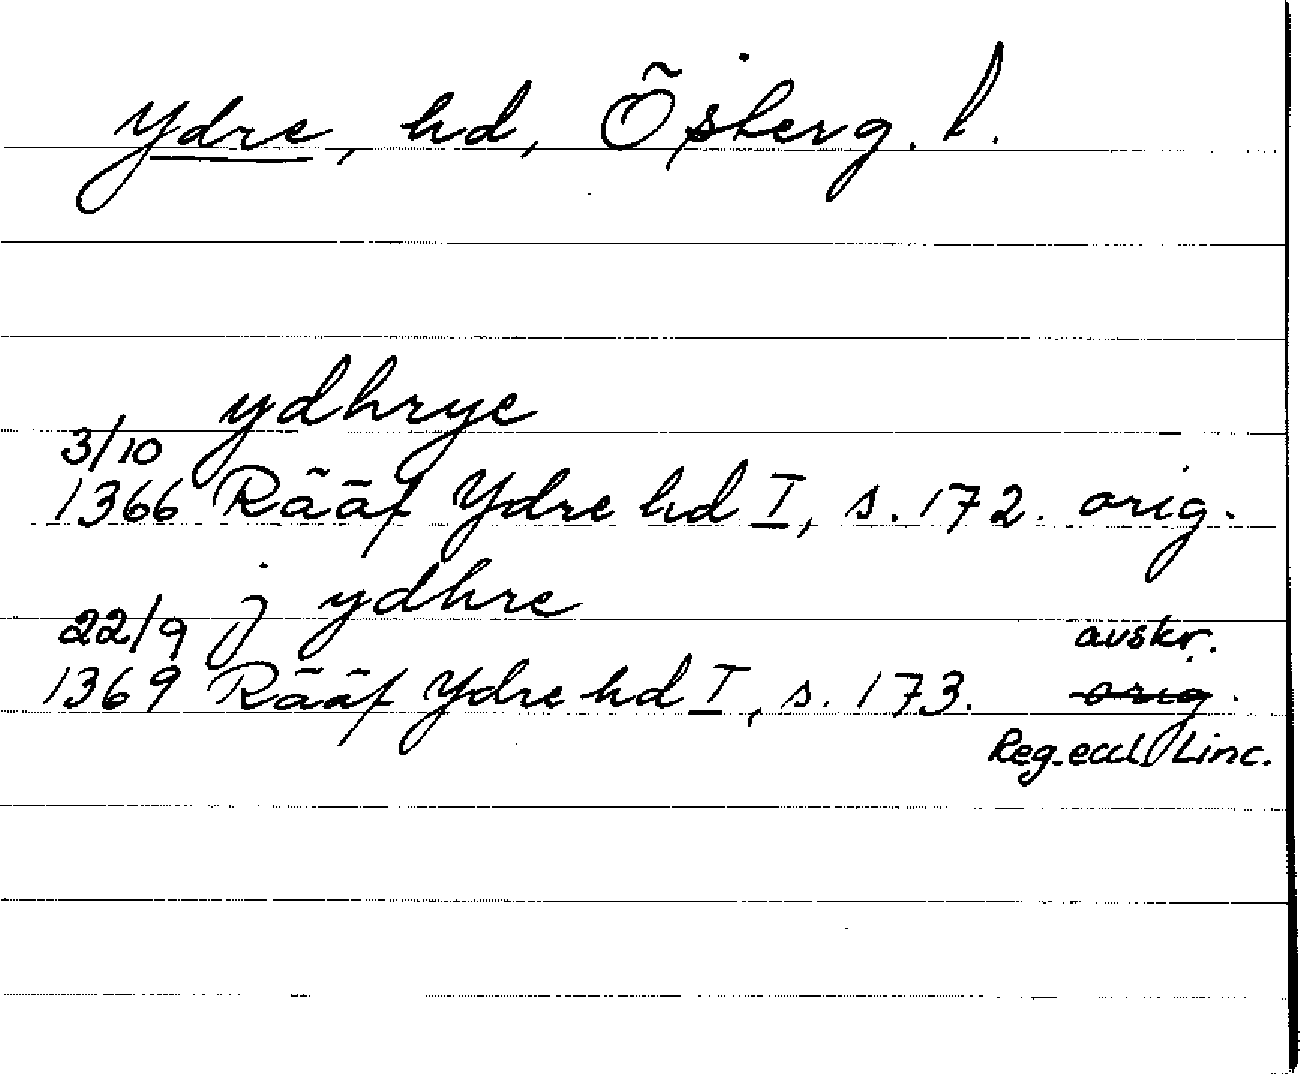 Ydre, hd, Österg. l.
ydhrye
3/10
1366 Rääf Ydre hd I, s. 172. orig.
j ydhre
22/9
avskr.
1369 Rääf Ydre hd I, s. 173. orig.
Reg. eccl. Linc.